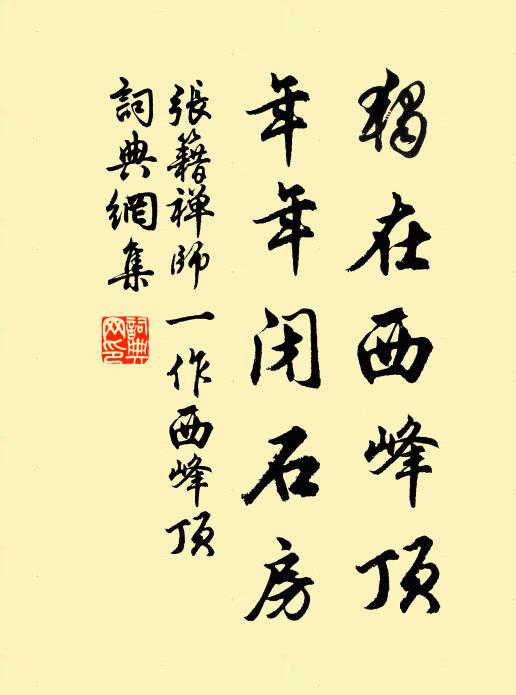 獨在西峰頂
年年閉石房
張籍禅師一作西峰頂
詞典網集
詞典
网印